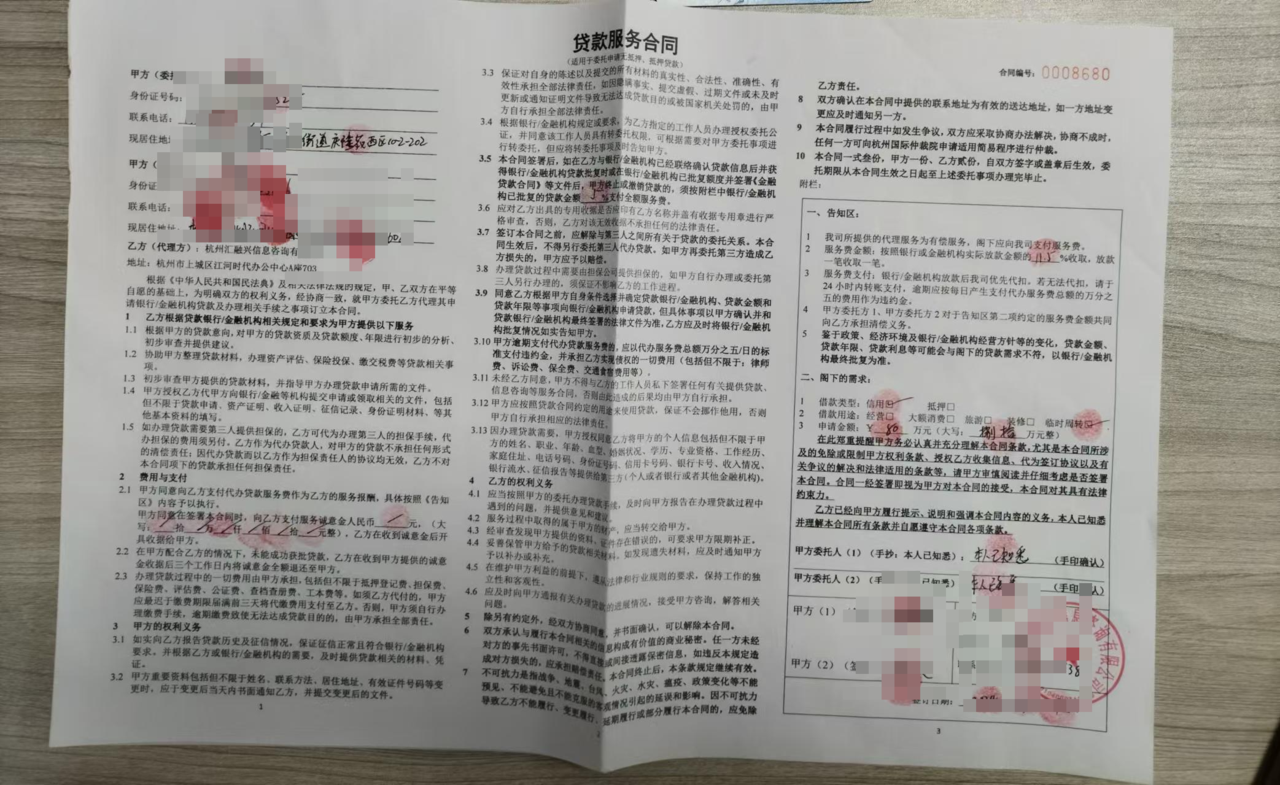 贷款服务合同
（适用于委托申请无抵押、抵押贷款）
合同编号：0008680
甲方（委
身份证号码
联系电话：
现居住地
街道庆隆苑西区102-202
甲方（
身份证
联系电话：
现居住地址
乙方（代理方）：杭州汇融兴信息咨询有
地址：杭州市上城区江河时代办公中心A座703
根据《中华人民共和国民法典》及相关法律法规的规定，甲、乙双方在平等
自愿的基础上，为明确双方的权利义务，经协商一致，就甲方委托乙方代理其申
请银行/金融机构贷款及办理相关手续之事项订立本合同。
1 乙方根据贷款银行/金融机构相关规定和要求为甲方提供以下服务
1.1 根据甲方的贷款意向，对甲方的贷款资质及贷款额度、年限进行初步的分析、
初步审查并提供建议。
1.2 协助甲方整理贷款材料，办理资产评估、保险投保、缴交税费等贷款相关事
项。
1.3 初步审查甲方提供的贷款材料，并指导甲方办理贷款申请所需的文件。
1.4 甲方授权乙方代甲方向银行/金融等机构提交申请或领取相关的文件，包括
但不限于贷款申请、资产证明、收入证明、征信记录、身份证明材料、等其
他基本资料的填写。
1.5 如办理贷款需要第三人提供担保的，乙方可代为办理第三人的担保手续，代
办担保的费用须另付。乙方作为代办贷款人，对甲方的贷款不承担任何形式
的清偿责任；因代办贷款而以乙方作为担保责任人的协议均无效，乙方不对
本合同项下的贷款承担任何担保责任。
2 费用与支付
2.1 甲方同意向乙方支付代办贷款服务费作为乙方的服务报酬，具体按照《告知
区》内容予以执行。
甲方同意在签署本合同时，向乙方支付服务诚意金人民币 / 元，（大
写： / 拾 / 万 / 仟 / 佰 / 拾 / 元整），乙方在收到诚意金后开
具收据给甲方。
2.2 在甲方配合乙方的情况下，未能成功获批贷款，乙方在收到甲方提供的诚意
金收据后三个工作日内将诚意金全额退还至甲方。
2.3 办理贷款过程中的一切费用由甲方承担，包括但不限于抵押登记费、担保费、
保险费、评估费、公证费、查档查册费、工本费等，如须乙方代付的，甲方
应最迟于缴费期限届满前三天将代缴费用支付至乙方。否则，甲方须自行办
理缴费手续，逾期缴费致使无法达成贷款目的，由甲方承担全部责任。
3 甲方的权利义务
3.1 如实向乙方报告贷款历史及征信情况，保证征信正常且符合银行/金融机构
要求。并根据乙方或银行/金融机构的需要，及时提供贷款相关的材料、凭
证。
3.2 甲方重要资料包括但不限于姓名、联系方法、居住地址、有效证件号码等变
更时，应于变更后当天内书面通知乙方，并提交变更后的文件。
1
3.3 保证对自身的陈述以及提交的所有材料的真实性、合法性、准确性、有
效性承担全部法律责任，如因隐瞒事实、提交虚假、过期文件或未及时
更新或通知证明文件导致无法达成贷款目的或被国家机关处罚的，由甲
方自行承担全部法律责任。
3.4 根据银行/金融机构规定或要求，为乙方指定的工作人员办理授权委托公
证，并同意该工作人员具有转委托权限，可根据需要对甲方委托事项进
行转委托，但应将转委托事项及时告知甲方。
3.5 本合同签署后，如在乙方与银行/金融机构已经联络确认贷款信息后并获
得银行/金融机构贷款批复时或在银行/金融机构已批复额度并签署《金融
贷款合同》等文件后，甲方终止或撤销贷款的，须按附栏中银行/金融机
构已批复的贷款金额 5 %支付全额服务费。
3.6 应对乙方出具的专用收据是否应印有乙方名称并盖有收据专用章进行严
格审查，否则，乙方对该无效收据不承担任何的法律责任。
3.7 签订本合同之前，应解除与第三人之间所有关于贷款的委托关系，本合
同生效后，不得另行委托第三人代办贷款，如甲方再委托第三方造成乙
方损失的，甲方应予以赔偿。
3.8 办理贷款过程中需要由担保公司提供担保的，如甲方自行办理或委托第
三人另行办理的，须保证不影响乙方的工作进程。
3.9 同意乙方根据甲方自身条件选择并确定贷款银行/金融机构、贷款金额和
贷款年限等事项向银行/金融机构申请贷款，但具体事项以甲方确认并和
贷款银行/金融机构最终签署的法律文件为准，乙方应及时将银行/金融机
构批复情况如实告知甲方。
3.10 甲方逾期支付代办贷款服务费的，应以代办服务总额万分之五/日的标
准支付违约金，并承担乙方实现债权的一切费用（包括但不限于：律师
费、诉讼费、保全费、交通食宿费用等）。
3.11 未经乙方同意，甲方不得与乙方的工作人员私下签署任何有关提供贷款、
信息咨询等服务合同，否则由此造成的后果均由甲方自行承担。
3.12 甲方应按照贷款合同约定的用途来使用贷款，保证不会挪作他用，否则
甲方自行承担相应的法律责任。
3.13 因办理贷款需要，甲方授权同意乙方将甲方的个人信息包括但不限于甲
方的姓名、职业、年龄、血型、婚姻状况、学历、专业资格、工作经历、
家庭住址、电话号码、身份证号码、信用卡号码、银行卡号、收入情况、
银行流水、征信报告等提供给第三方（个人或者银行或者其他金融机构）。
4 乙方的权利义务
4.1 应当按照甲方的委托办理贷款手续，及时向甲方报告在办理贷款过程中
遇到的问题，并提供意见和建议。
4.2 服务过程中取得的属于甲方的财产，应当转交给甲方。
4.3 经审查发现甲方提供的资料、证件存在错误的，可要求甲方限期补正。
4.4 妥善保管甲方给予的贷款相关材料，如发现遗失材料，应及时通知甲方
予以补办或补充。
4.5 在维护甲方利益的前提下，遵循法律和行业规则的要求，保持工作的独
立性和客观性。
4.6 应及时向甲方通报有关办理贷款的进展情况，接受甲方咨询，解答相关
问题。
5 除另有约定外，经双方协商同意，并书面确认，可以解除本合同。
6 双方承认与履行本合同相关的信息构成有价值的商业秘密。任一方未经
对方的事先书面许可，不得直接或间接透露保密信息，如违反本规定造
成对方损失的，应承担赔偿责任。本合同终止后，本条款规定继续有效。
7 不可抗力是指战争、地震、台风、火灾、水灾、瘟疫、政策变化等不能
预见、不能避免且不能克服的客观情况引起的延误和影响，因不可抗力
导致乙方不能履行、变更履行、延期履行或部分履行本合同的，应免除
2
乙方责任。
8 双方确认在本合同中提供的联系地址为有效的送达地址，如一方地址变
更应及时通知另一方。
9 本合同履行过程中如发生争议，双方应采取协商办法解决，协商不成时，
任何一方可向杭州国际仲裁院申请适用简易程序进行仲裁。
10 本合同一式叁份，甲方一份、乙方贰份，自双方签字或盖章后生效，委
托期限从本合同生效之日起至上述委托事项办理完毕止。
附栏：
一、告知区：
1 我司所提供的代理服务为有偿服务，阁下应向我司支付服务费。
2 服务费金额：按照银行或金融机构实际放款金额的 11.5 %收取，放款
一笔收取一笔。
3 服务费支付：银行/金融机构放款后我司优先代扣。若无法代扣，请于
24小时内转账支付，逾期应按每日产生支付代办服务费总额的万分之
五的费用作为违约金。
4 甲方委托方1、甲方委托方2对于告知区第二项约定的服务费金额共同
向乙方承担清偿义务。
5 鉴于政策、经济环境及银行/金融机构经营方针等的变化，贷款金额、
贷款年限、贷款利息等可能会与阁下的贷款需求不符，以银行/金融机
构最终批复为准。
二、阁下的需求：
1 借款类型：信用☑ 抵押□
2 借款用途：经营□ 大额消费□ 旅游□ 装修□ 临时周转☑
3 申请金额：￥ 80 万元（大写： 捌拾 万元整）
在此郑重提醒甲方务必认真并充分理解本合同条款，尤其是本合同所
涉及的免除或限制甲方权利条款、授权乙方收集信息、代为签订协议以及有
关争议的解决和法律适用的条款等，请甲方审慎阅读并仔细考虑是否签署
本合同。合同一经签署即视为甲方对本合同的接受，本合同对其具有法律
约束力。
乙方已经向甲方履行提示、说明和强调本合同内容的义务，本人已知悉
并理解本合同所有条款并自愿遵守本合同各项条款。
甲方委托人（1）（手抄：本人已知悉）：本人已知悉（手印确认）
甲方委托人（2）（手
已知悉）
（手印
人）
甲方（1）
甲方（2）（签
38
签订日期：
3